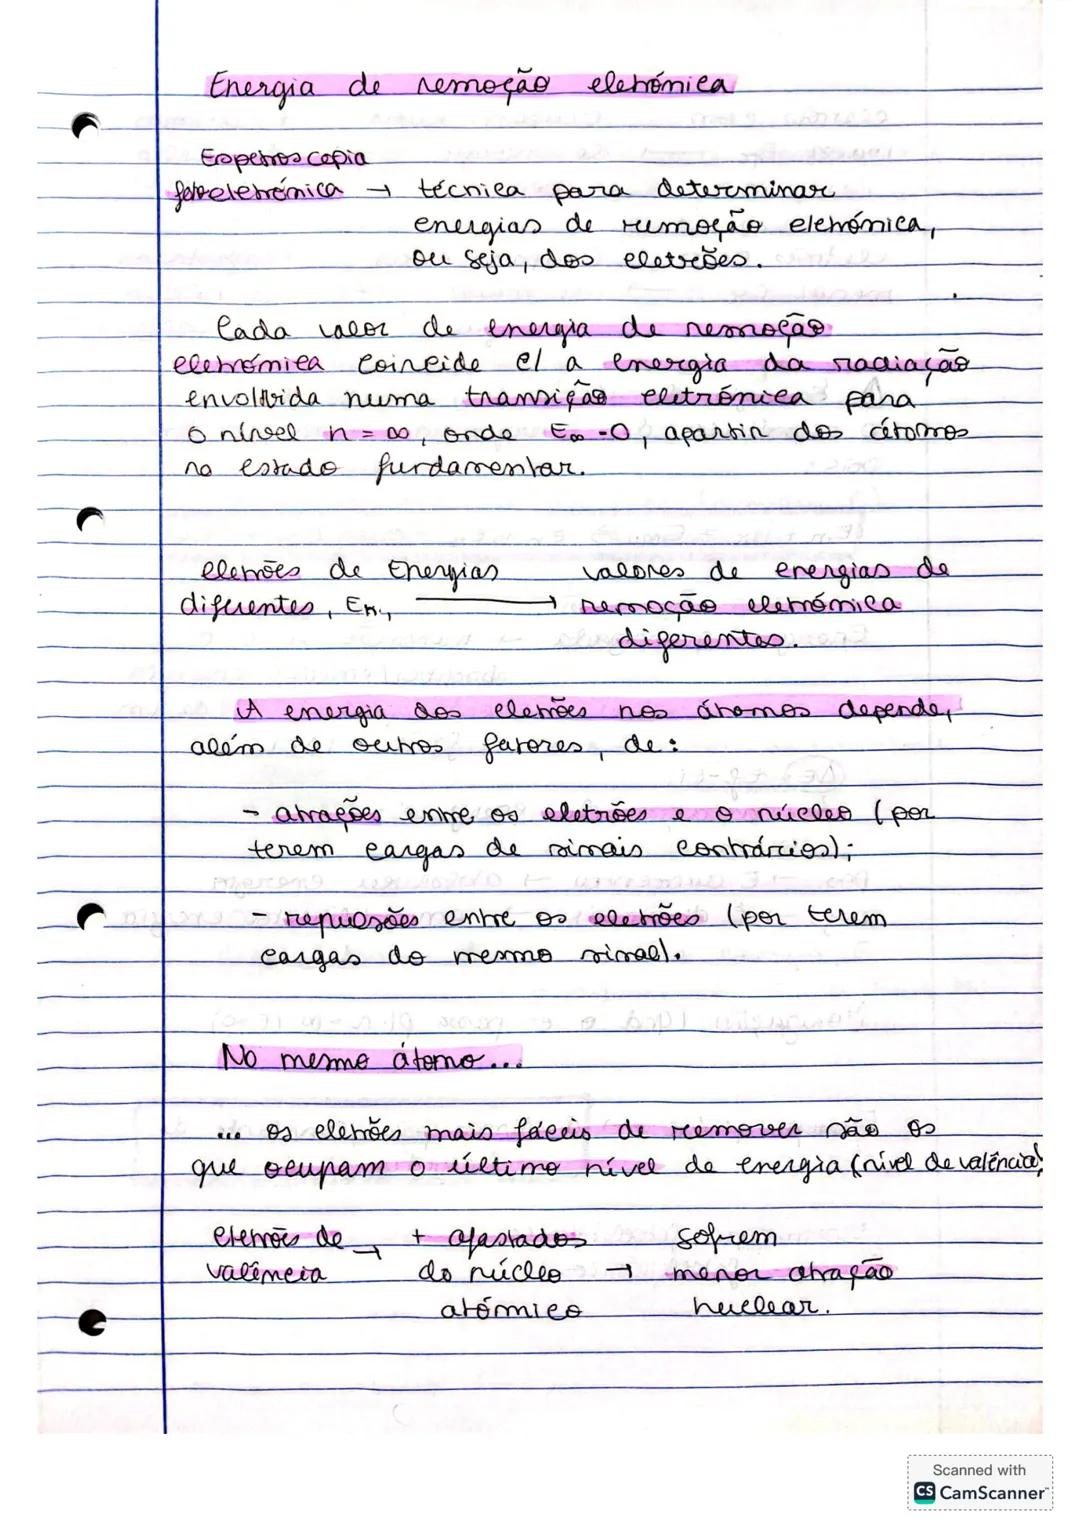 Energia de remoção eletrónica
Espetroscopia
fotoeletrónica → técnica para determinar
energias de remoção eletrónica,
ou seja, dos eletrões.
Cada valor de energia de remoção
eletrónica coincide c/ a energia da radiação
envolvida numa transição eletrónica para
o nível n = ∞, onde E∞ = 0, apartir dos átomos
no estado fundamental.
eletrões de Energias valores de energias de
diferentes, En, → remoção eletrónica
diferentes.
A energia dos eletrões nos átomos depende,
além de outros fatores, de:
- atrações entre os eletrões e o núcleo (por
terem cargas de sinais contrários);
- repulsões entre os eletrões (por terem
cargas do mesmo sinal).
No mesmo átomo...
... os eletrões mais fáceis de remover são os
que ocupam o último nível de energia (nível de valência)
eletrões de → + afastados sofrem
valência do núcleo → menor atração
atómico nuclear.
Scanned with
CS CamScanner